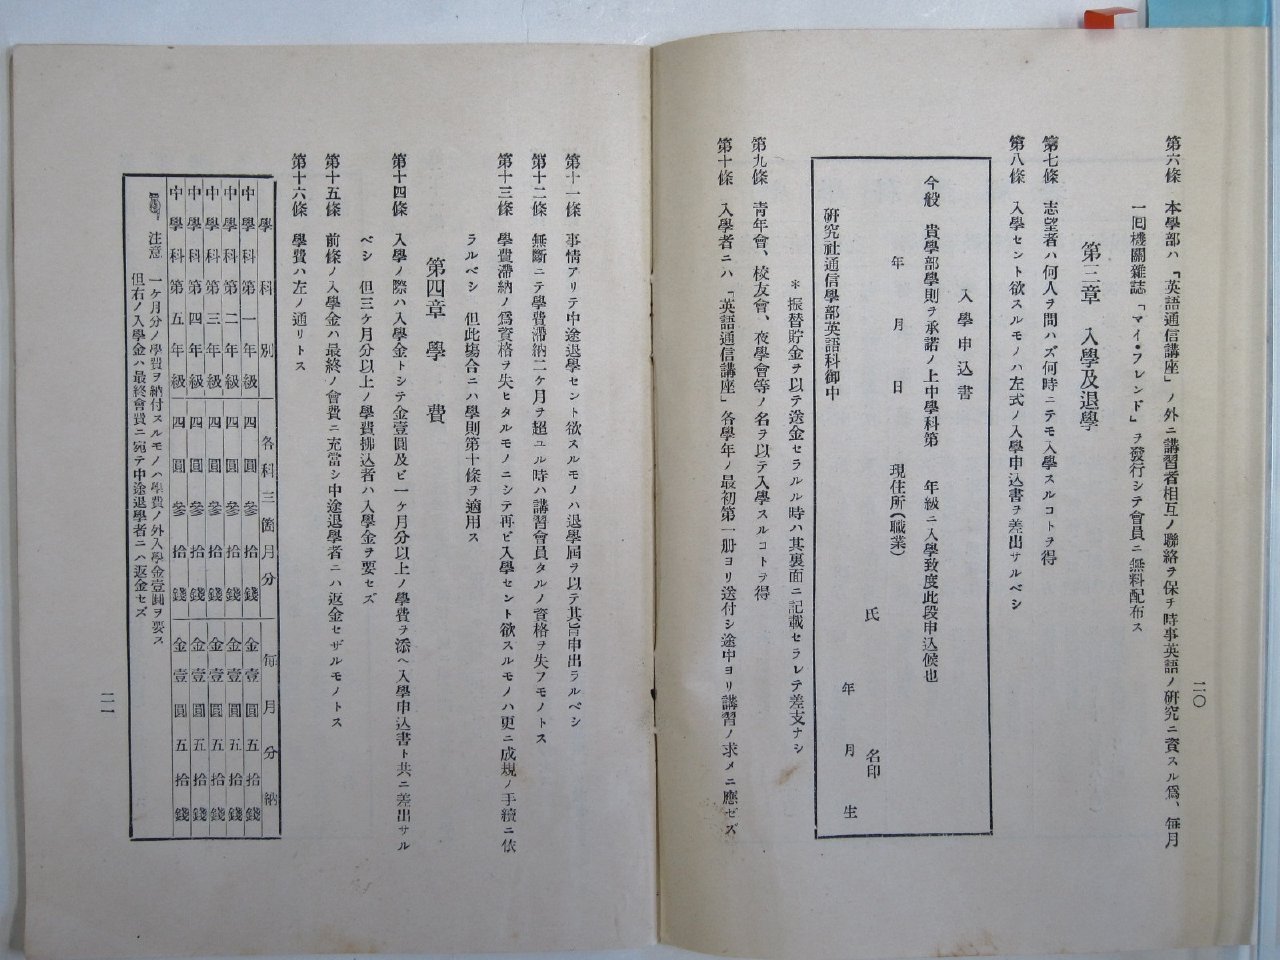 二〇
第六條　本學部ハ「英語通信講座」ノ外ニ講習者相互ノ聯絡ヲ保チ時事英語ノ硏究ニ資スル爲、每月
一囘機關雜誌「マイ・フレンド」ヲ發行シテ會員ニ無料配布ス
第三章　入學及退學
第七條　志望者ハ何人ヲ問ハズ何時ニテモ入學スルコトヲ得
第八條　入學セント欲スルモノハ左式ノ入學申込書ヲ差出サルベシ
入學申込書
今般　貴學部學則ヲ承諾ノ上中學科第　年級ニ入學致度此段申込候也
年　月　日　現住所(職業)
氏　名印
年　月　生
硏究社通信學部英語科御中
＊振替貯金ヲ以テ送金セラルル時ハ其裏面ニ記載セラレテ差支ナシ
第九條　靑年會、校友會、夜學會等ノ名ヲ以テ入學スルコトヲ得
第十條　入學者ニハ「英語通信講座」各學年ノ最初第一册ヨリ送付シ途中ヨリ講習ノ求メニ應ゼズ
第十一條　事情アリテ中途退學セント欲スルモノハ退學屆ヲ以テ其旨申出ラルベシ
第十二條　無斷ニテ學費滯納二ケ月ヲ超ユル時ハ講習會員タルノ資格ヲ失フモノトス
第十三條　學費滯納ノ爲資格ヲ失ヒタルモノニシテ再ビ入學セント欲スルモノハ更ニ成規ノ手續ニ依
ラルベシ　但此塲合ニハ學則第十條ヲ適用ス
第四章　學　費
第十四條　入學ノ際ハ入學金トシテ金壹圓及ビ一ケ月分以上ノ學費ヲ添ヘ入學申込書ト共ニ差出サル
ベシ　但三ケ月分以上ノ學費拂込者ハ入學金ヲ要セズ
第十五條　前條ノ入學金ハ最終ノ會費ニ充當シ中途退學者ニハ返金セザルモノトス
第十六條　學費ハ左ノ通リトス
學科別　各科三箇月分　每月分納
中學科第一年級　四圓參拾錢　金壹圓五拾錢
中學科第二年級　四圓參拾錢　金壹圓五拾錢
中學科第三年級　四圓參拾錢　金壹圓五拾錢
中學科第四年級　四圓參拾錢　金壹圓五拾錢
中學科第五年級　四圓參拾錢　金壹圓五拾錢
注意　一ケ月分ノ學費ヲ納付スルモノハ學費ノ外入學金壹圓ヲ要ス
但右ノ入學金ハ最終會費ニ宛テ中途退學者ニハ返金セズ
二一